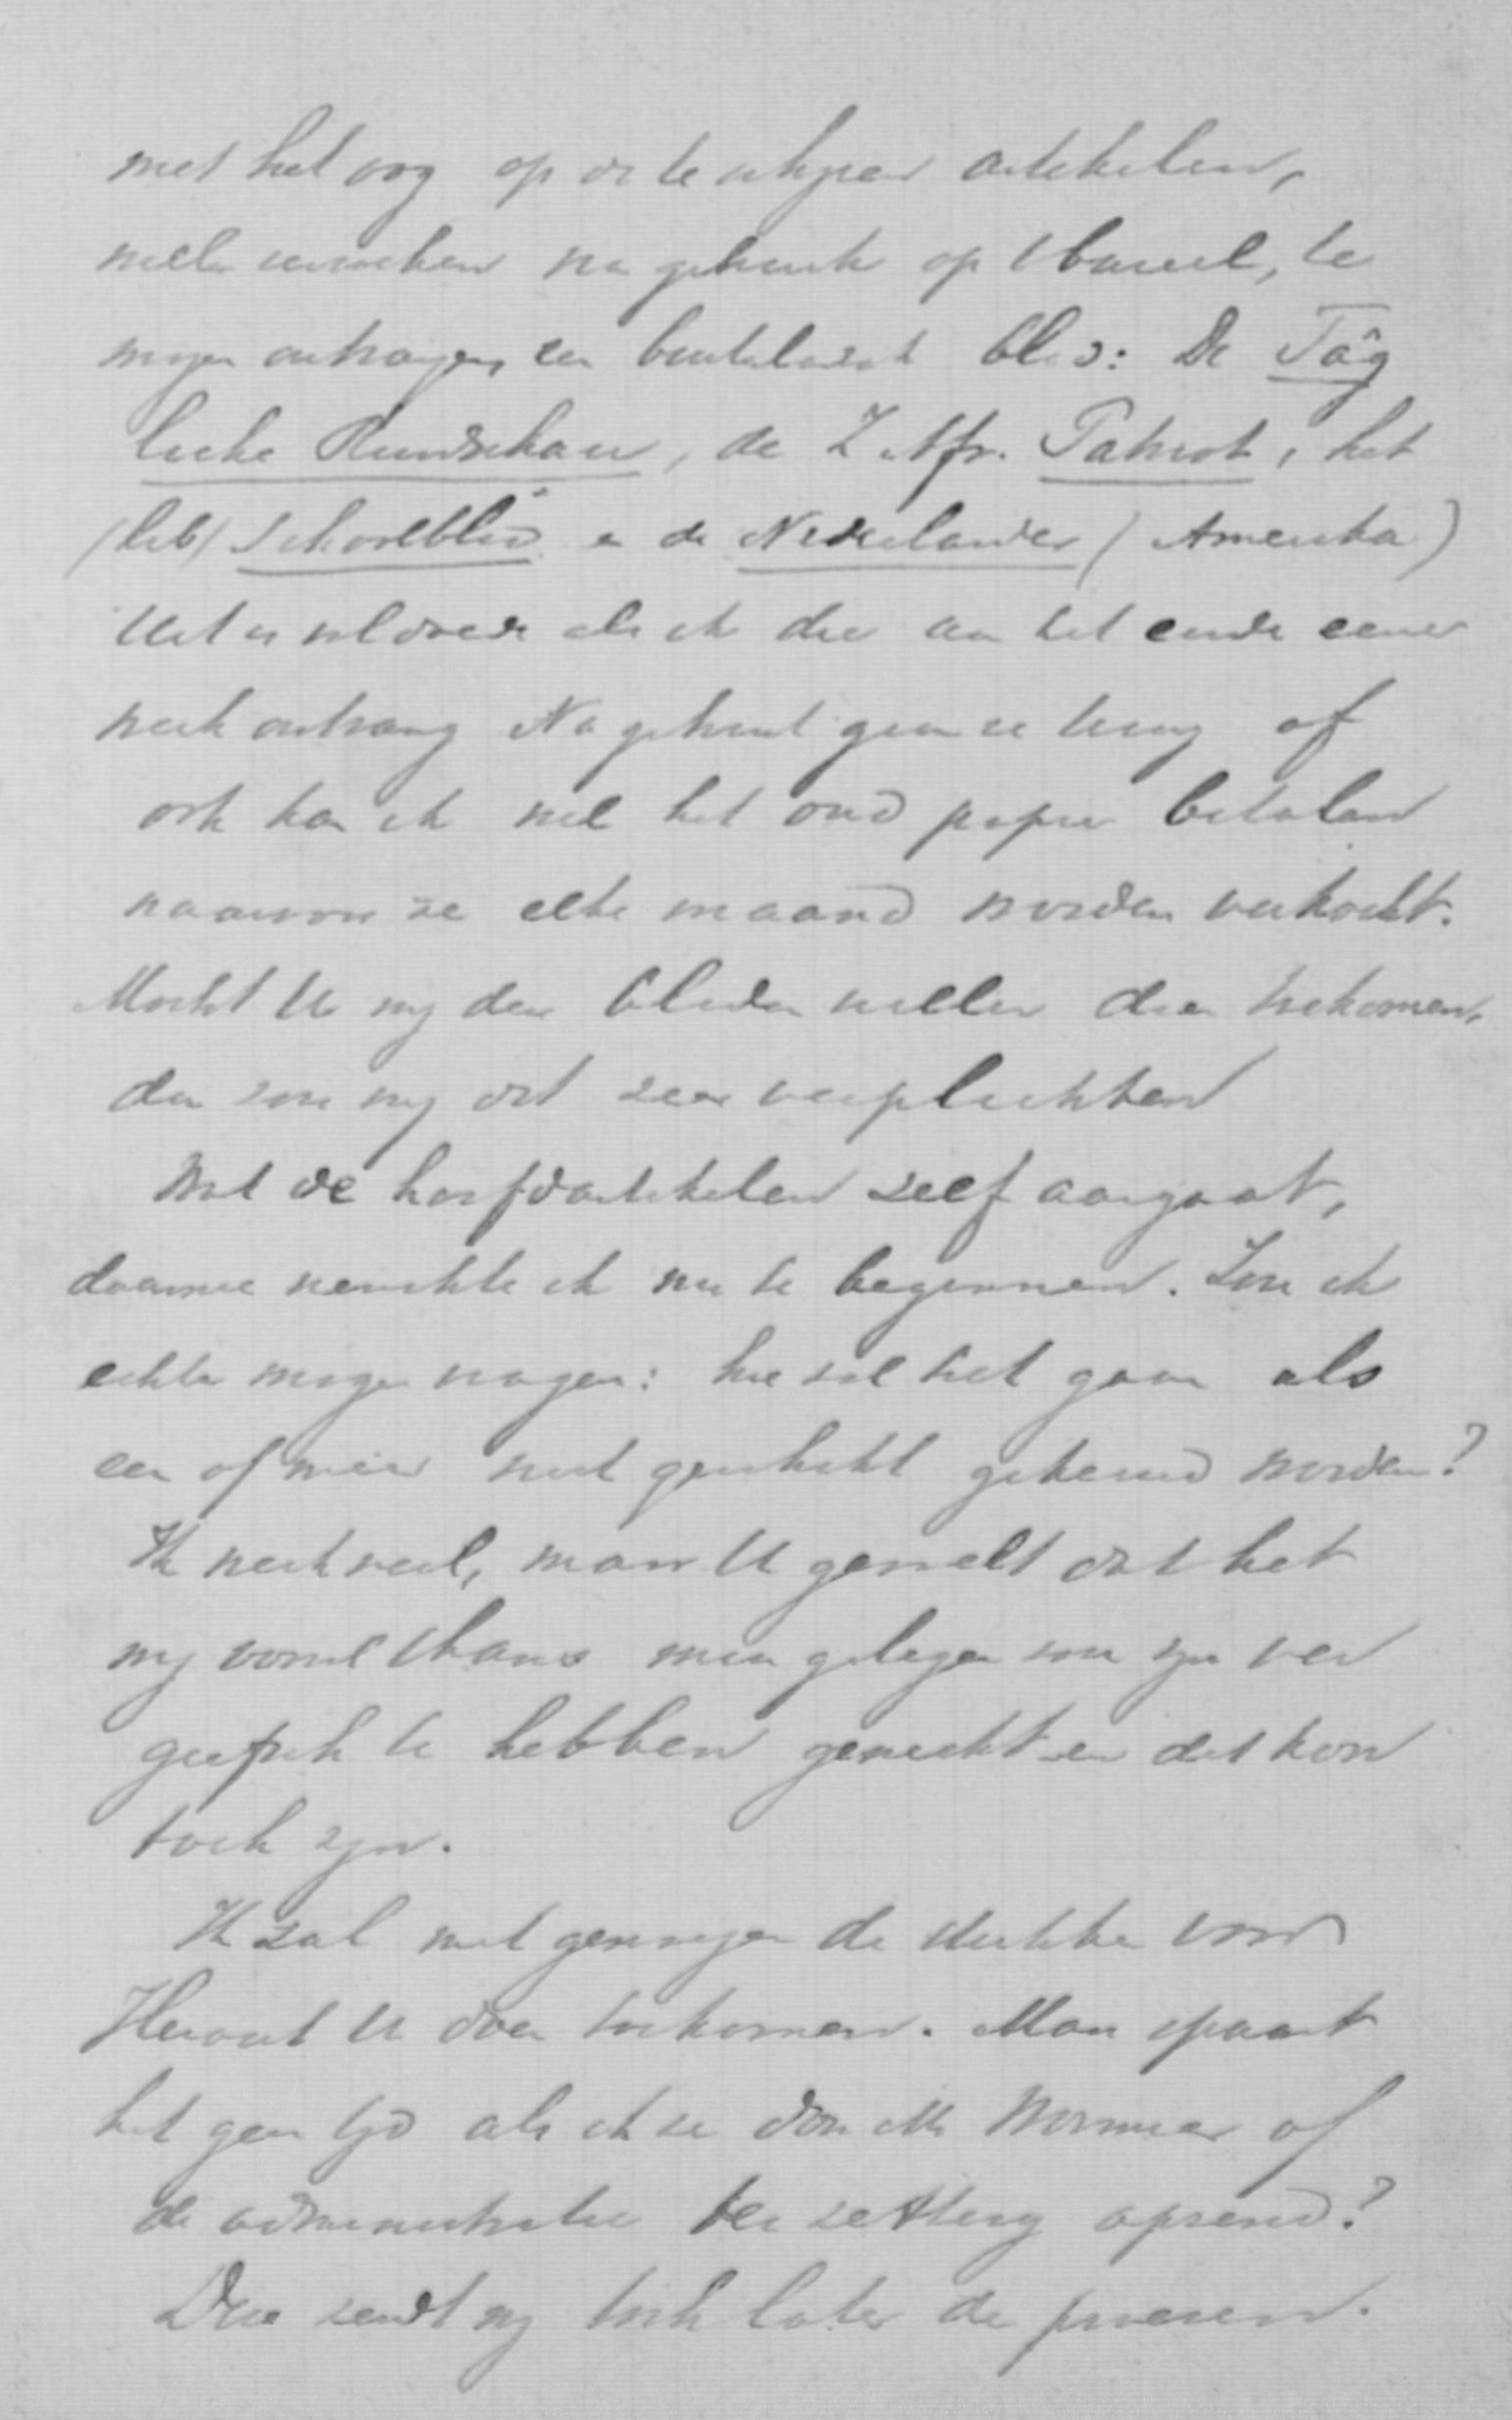 met het oog op de te schrijven artikelen,
mede verzoeken na gebruik op 't bureel, te
mogen ontvangen een buitenlandsch blad: De Täg
liche Rundschau, de Z. Afr. Patriot, het
(lib) Schoolblad en de Nederlander (Amerika)
Het is voldoende als ik die aan het einde eener
week ontvang Na gebruik gaan ze terug of
ook kan ik wel het oud papier betalen
waarvoor ze elke maand worden verkocht.
Mocht U mij deze bladen willen doen toekomen,
dan zou mij dit zeer verplichten
Wat de hoofdartikelen zelf aangaat,
daarmee wenschte ik nu te beginnen. Zou ik
echter mogen vragen: hoe zal het gaan als
een of meer niet geschikt gekeurd worden?
Ik werk veel, maar U gevoelt dat het
mij vooral thans min gelegen zou zijn ver
geefsch te hebben gewerkt en dit kon
toch zijn.
Ik zal met genoegen de stukken voor
Heraut U doen toekomen. Maar spaart
het geen tijd als ik ze don Mr Wormser of
de administratie ter zetting opzend?
Deze zendt mij toch later de proeven.